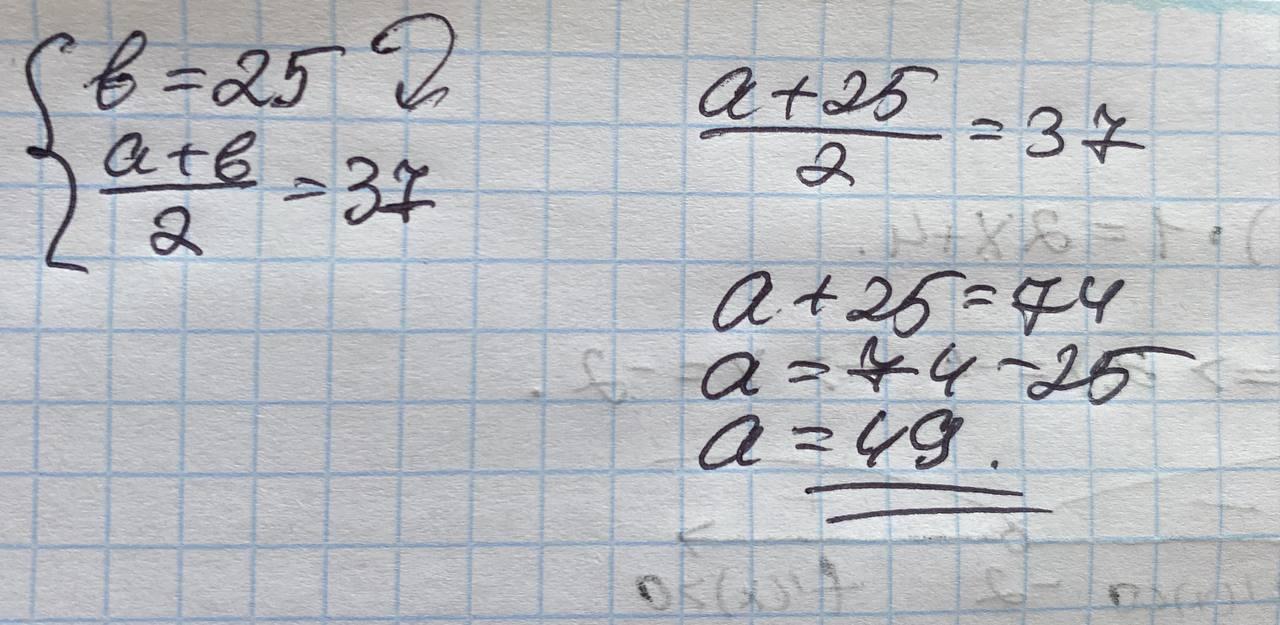 b = 25
(a + b)/2 = 37
(a + 25)/2 = 37
a + 25 = 74
a = 74 - 25
a = 49.